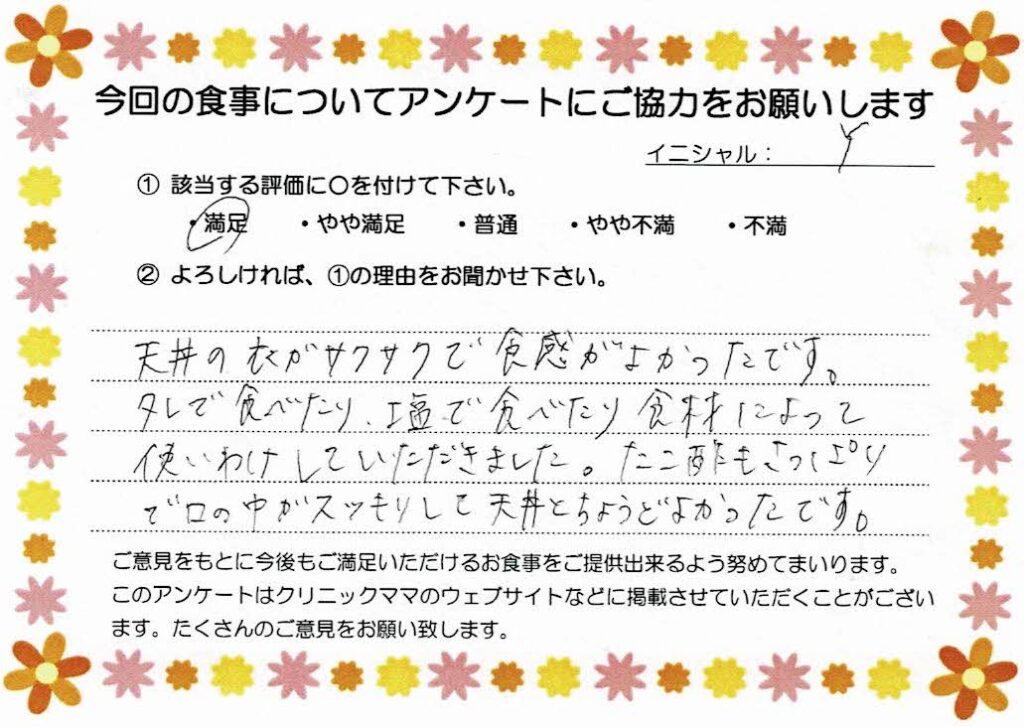 今回の食事についてアンケートにご協力をお願いします
イニシャル： Y
① 該当する評価に〇を付けて下さい。
・満足 ・やや満足 ・普通 ・やや不満 ・不満
② よろしければ、①の理由をお聞かせ下さい。
天丼の衣がサクサクで食感がよかったです。
タレで食べたり、塩で食べたり食材によって
使いわけしていただきました。たこ酢もさっぱり
で口の中がスッキリして天丼とちょうどよかったです。
ご意見をもとに今後もご満足いただけるお食事をご提供出来るよう努めてまいります。
このアンケートはクリニックママのウェブサイトなどに掲載させていただくことがござい
ます。たくさんのご意見をお願い致します。